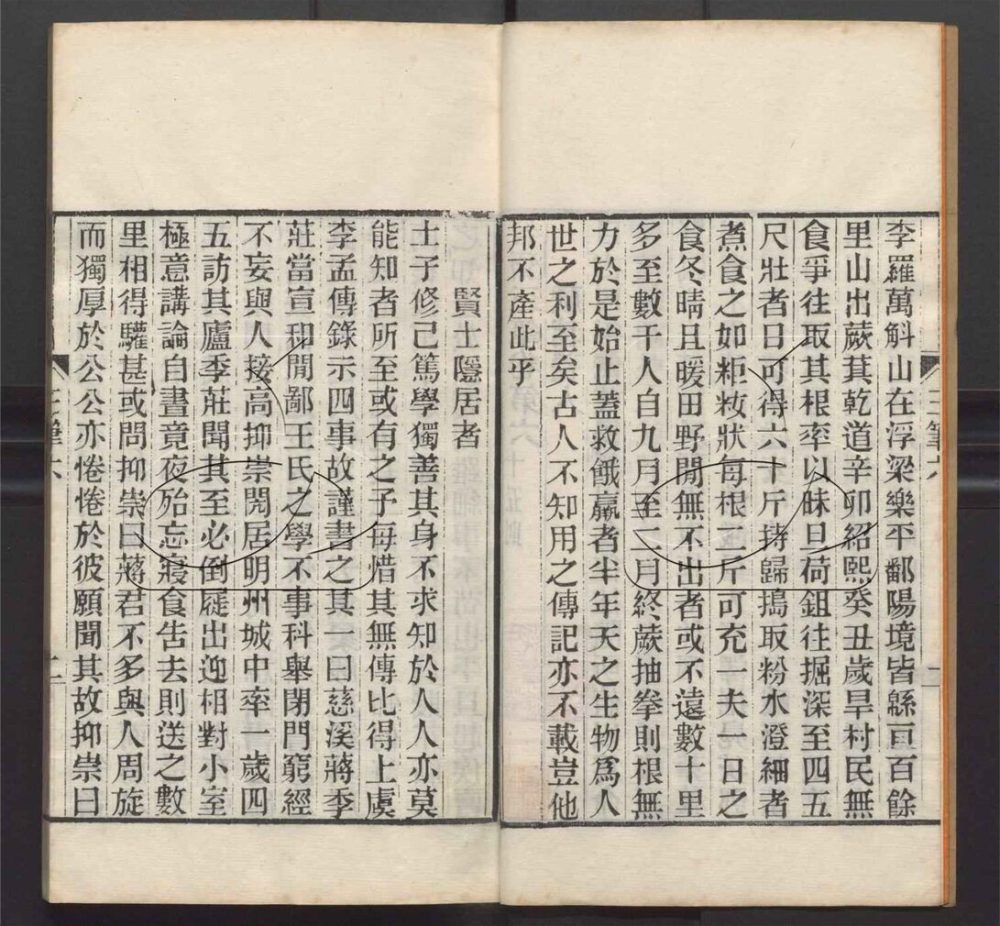 李羅萬斛山在浮梁樂平鄱陽境皆緜亘百餘
里山出蕨萁乾道辛卯紹熙癸丑歲旱村民無
食爭往取其根率以昧旦荷鉏往掘深至四五
尺壯者日可得六十斤持歸搗取粉水澄細者
煮食之如粔籹狀每根二斤可充一夫一日之
食冬晴且暖田野閒無不出者或不遠數十里
多至數千人自九月至二月終蕨抽拳則根無
力於是始止蓋救餓羸者半年天之生物爲人
世之利至矣古人不知用之傳記亦不載豈他
邦不產此乎
三筆六
賢士隱居者
士子修己篤學獨善其身不求知於人人亦莫
能知者所至或有之予每惜其無傳比得上虞
李孟傳錄示四事故謹書之其一曰慈溪蔣季
莊當宣和閒鄙王氏之學不事科舉閉門窮經
不妄與人接高抑崇閌居明州城中率一歲四
五訪其廬季莊聞其至必倒屣出迎相對小室
極意講論自晝竟夜殆忘寢食告去則送之數
里相得驩甚或問抑崇曰蔣君不多與人周旋
而獨厚於公公亦惓惓於彼願聞其故抑崇曰
三筆六
二